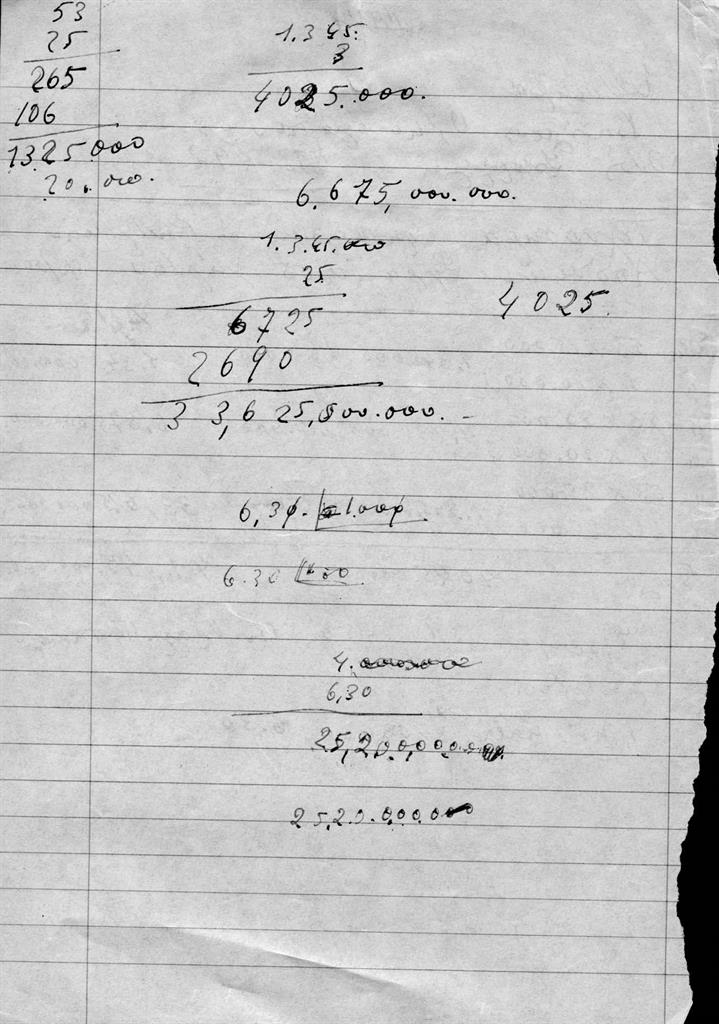 53
25
265
106
1325000
20.000.
1.345.
3
4025.000.
6.675,000.000.
1.345.000
25
4025.
6725
2690
33,625,000.000.
6,30. 1.000
6.30 100
4.000000
6,30
25,200,000.0
25,20.000.0